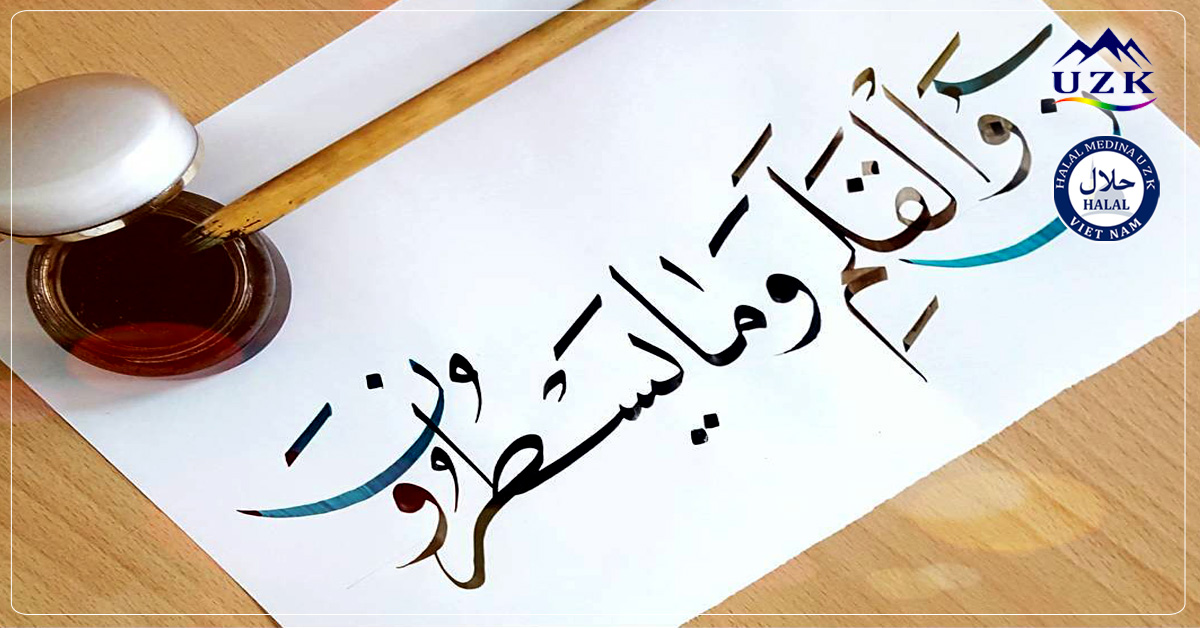 نۤ وَٱلْقَلَمِ وَمَا يَسْطُرُونَ
UZK
HALAL MEDINA UZK
حلال
HALAL
VIET NAM